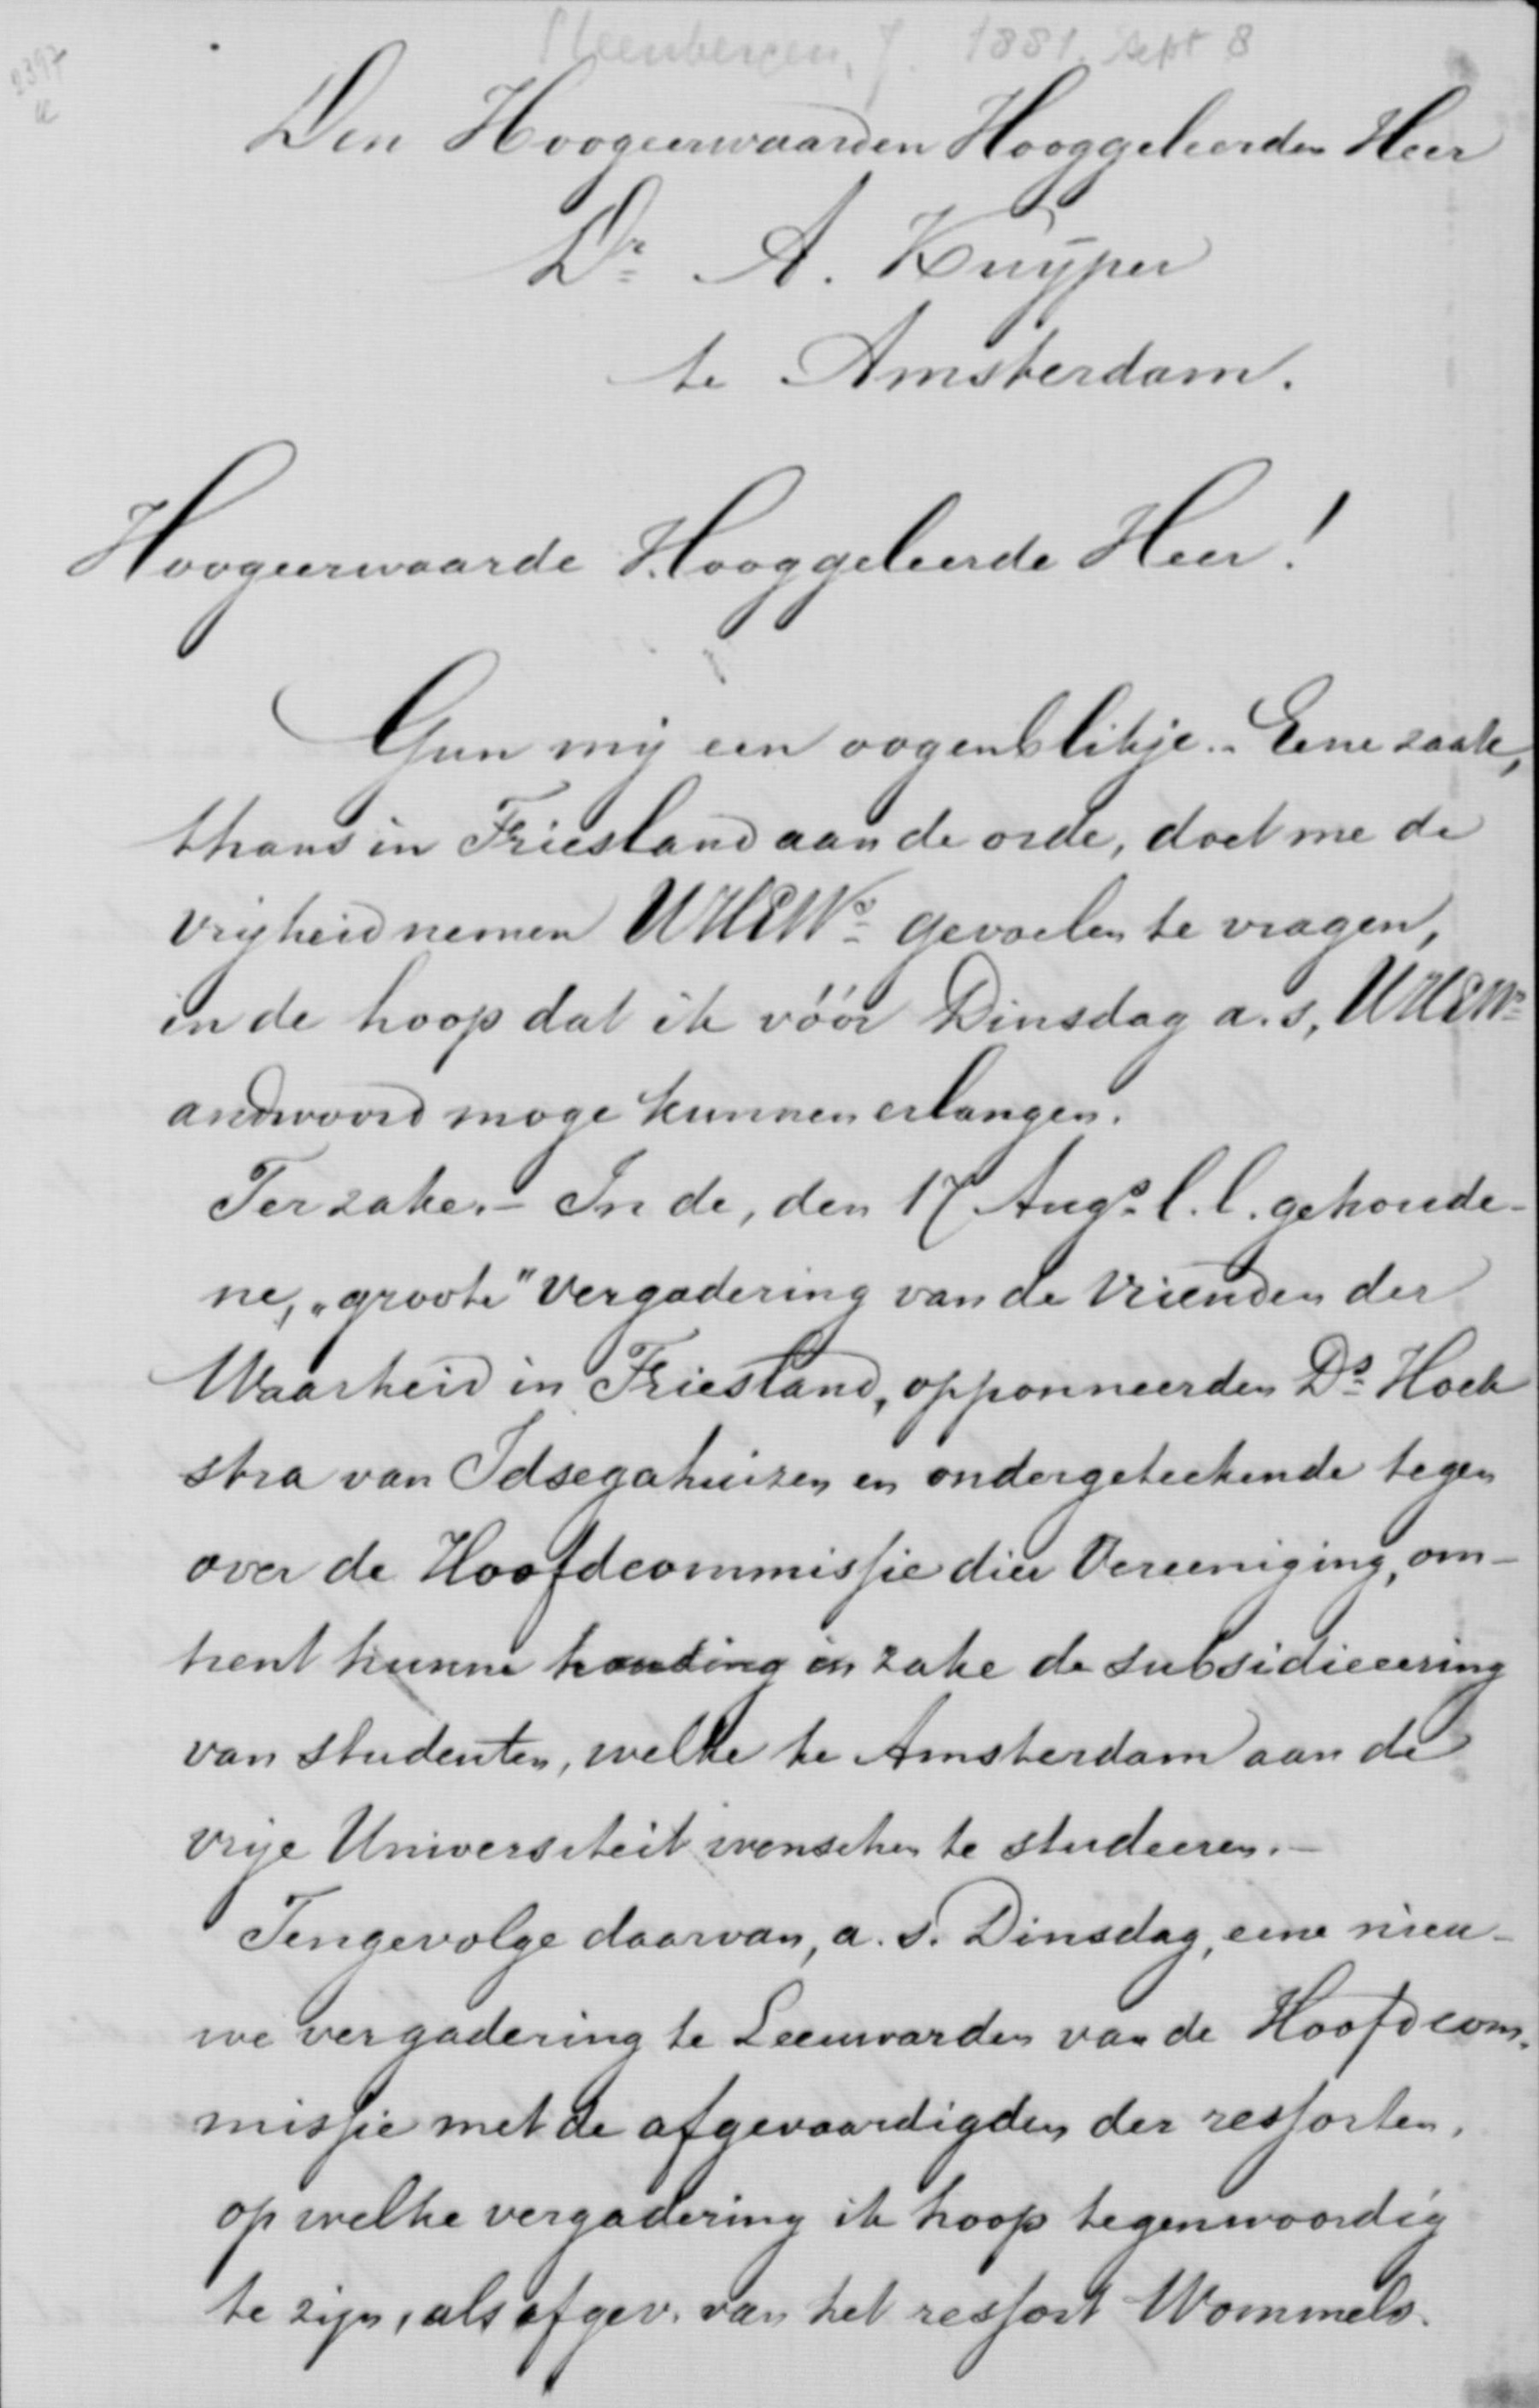 Steenbergen, J. 1881, Sept 8
2397
Den Hoogeerwaarden Hooggeleerden Heer
Dr A. Kuÿper
te Amsterdam.
Hoogeerwaarde Hooggeleerde Heer!
Gun mij een oogenblikje. – Eene zaak,
thans in Friesland aan de orde, doet me de
vrijheid nemen UHEWs gevoelen te vragen,
in de hoop dat ik vóór Dinsdag a.s, UHEWs
andwoord moge kunnen erlangen.
Ter zake. – In de, den 17 Augs l.l. gehoude-
ne, "groote" vergadering van de Vrienden der
Waarheid in Friesland, opponneerden Ds Hoek
stra van Idsegahuizen en ondergeteekende tegen
over de Hoofdcommissie dier Vereeniging, om-
trent hunne houding in zake de subsidieering
van studenten, welke te Amsterdam aan de
vrije Universiteit wenschen te studeeren. –
Tengevolge daarvan, a.s. Dinsdag, eene nieu-
we vergadering te Leeuwarden van de Hoofdcom-
missie met de afgevaardigden der ressorten,
op welke vergadering ik hoop tegenwoordig
te zijn, als afgev. van het ressort Wommels.